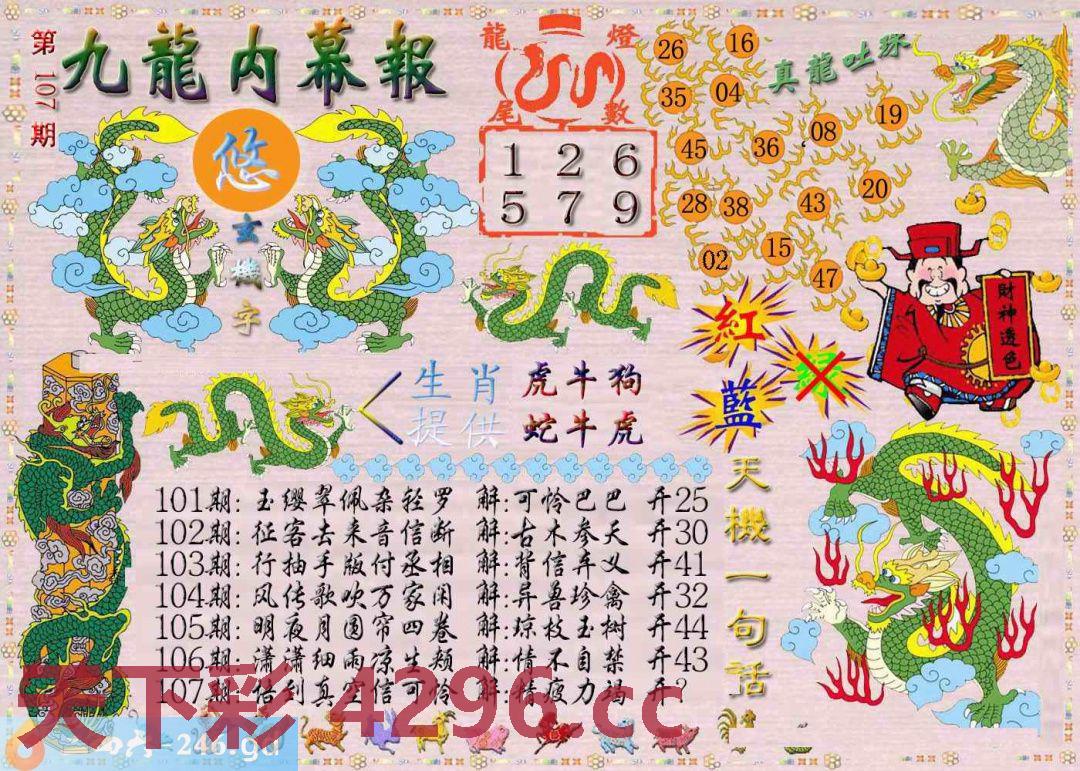 第107期
九龍内幕報
悠
玄機字
龍燈
尾數
1 2 6
5 7 9
真龍吐珠
26 16
35 04
19
08
45 36
20
28 38 43
15
02 47
財神透色
紅
綠
藍
生肖 虎牛狗
提供 蛇牛虎
天機一句話
101期: 玉缨翠佩杂轻罗 解:可怜巴巴 开25
102期: 征客去来音信断 解:古木参天 开30
103期: 行抽手版付丞相 解:背信弃义 开41
104期: 风传歌吹万家闲 解:异兽珍禽 开32
105期: 明夜月圆帘四卷 解:琼枝玉树 开44
106期: 潇潇细雨凉生颊 解:情不自禁 开43
107期: 悟到真空信可怜 解:精疲力竭 开?
天下彩 4296.cc
246.gd